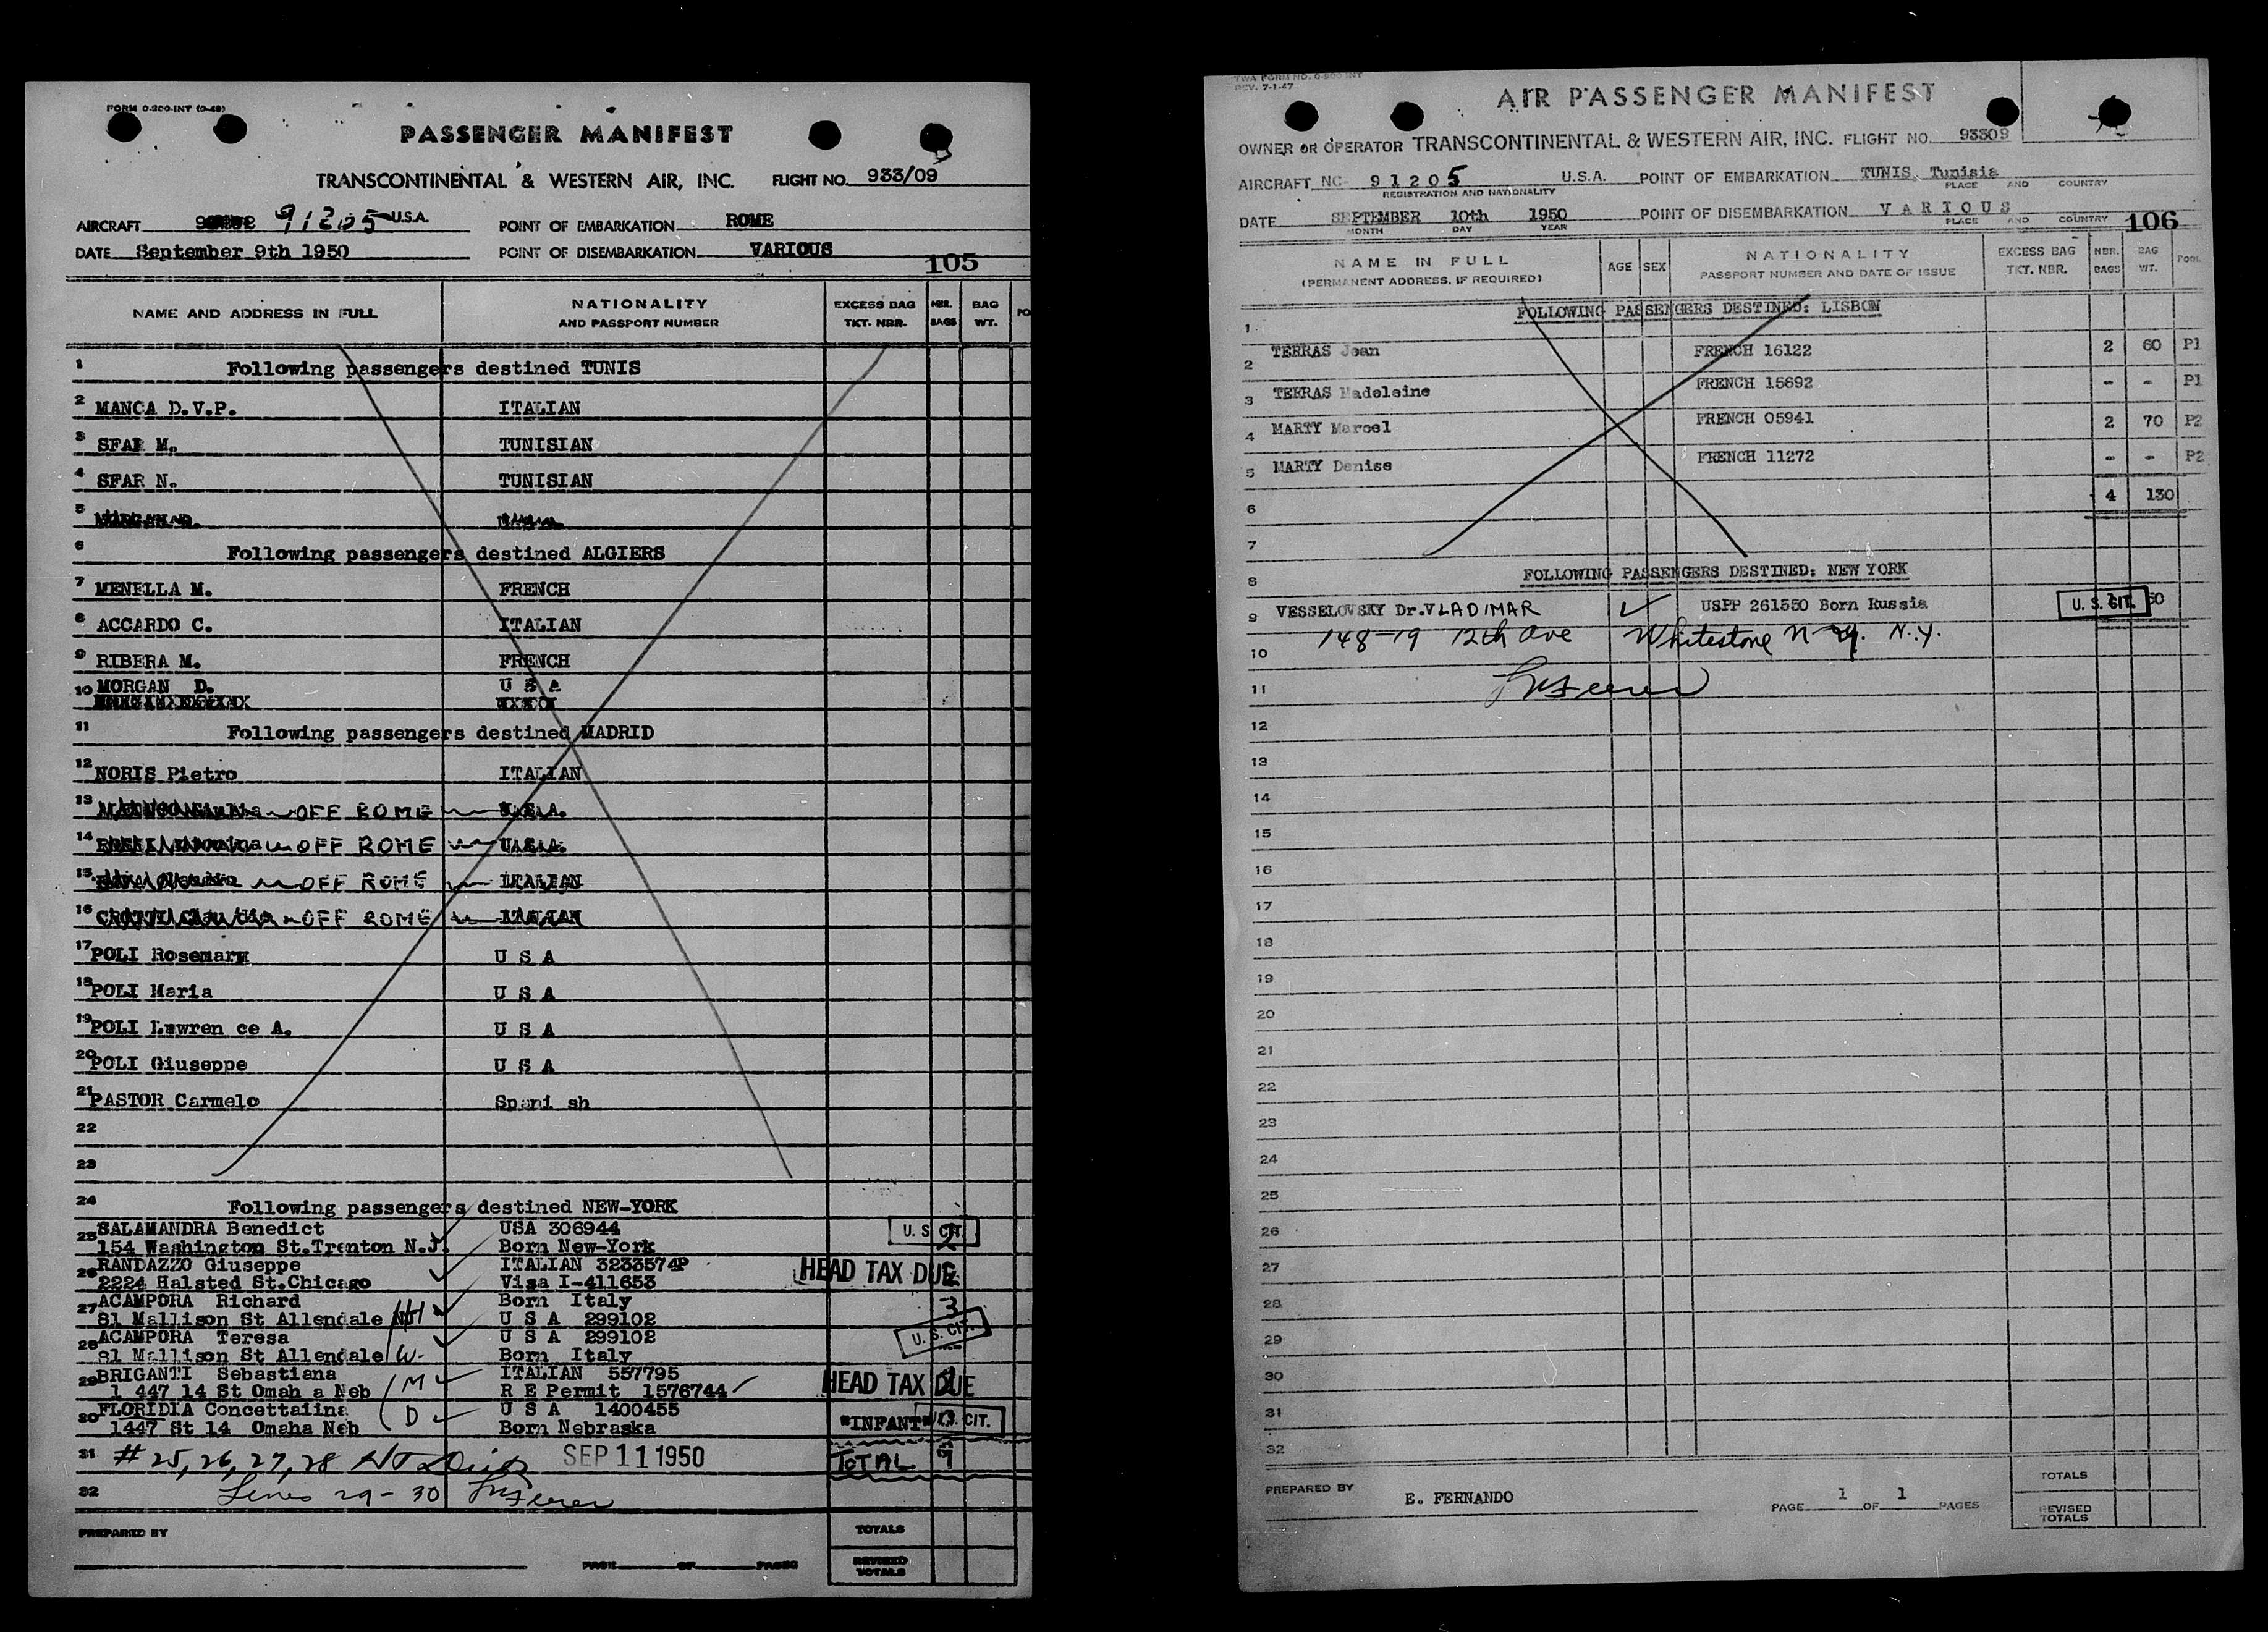 FORM 0-200-INT (9-48)
PASSENGER MANIFEST
TRANSCONTINENTAL & WESTERN AIR, INC. FLIGHT NO. 933/09
AIRCRAFT 91205 U.S.A. POINT OF EMBARKATION ROME
DATE September 9th 1950 POINT OF DISEMBARKATION VARIOUS
105
NAME AND ADDRESS IN FULL NATIONALITY AND PASSPORT NUMBER EXCESS BAG TKT. NBR. NBR. BAGS BAG WT. PO
1 Following passengers destined TUNIS
2 MANCA D.V.P. ITALIAN
3 SFAR M. TUNISIAN
4 SFAR N. TUNISIAN
5
6 Following passengers destined ALGIERS
7 MENELLA M. FRENCH
8 ACCARDO C. ITALIAN
9 RIBERA M. FRENCH
10 MORGAN D. U S A
11 Following passengers destined MADRID
12 NORIS Pietro ITALIAN
13 OFF ROME U.S.A.
14 OFF ROME U.S.A.
15 OFF ROME ITALIAN
16 CROTTI OFF ROME ITALIAN
17 POLI Rosemary U S A
18 POLI Maria U S A
19 POLI Lawren ce A. U S A
20 POLI Giuseppe U S A
21 PASTOR Carmelo Spani sh
22
23
24 Following passengers destined NEW-YORK
25 SALAMANDRA Benedict USA 306944 U. S. CIT. 2
154 Washington St.Trenton N.J. Born New-York
26 RANDAZZO Giuseppe ITALIAN 3233574P HEAD TAX DUE
2224 Halsted St.Chicago Visa I-411653
27 ACAMPORA Richard Born Italy 3
81 Mallison St Allendale NJ H U S A 299102
28 ACAMPORA Teresa U S A 299102 U. S. CIT.
81 Mallison St Allendale W. Born Italy
29 BRIGANTI Sebastiana ITALIAN 557795 HEAD TAX DUE
1 447 14 St Omah a Neb M R E Permit 1576744
30 FLORIDIA Concettaiina D U S A 1400455 "INFANT" U. S. CIT.
1447 St 14 Omaha Neb Born Nebraska
31 # 25, 26, 27, 28 SEP 11 1950 TOTAL 9
32 Lines 29-30
PREPARED BY TOTALS
PAGE OF PAGES REVISED TOTALS
TWA FORM NO. 0-200 INT
REV. 7-1-47
AIR PASSENGER MANIFEST
OWNER OR OPERATOR TRANSCONTINENTAL & WESTERN AIR, INC. FLIGHT NO. 93309
AIRCRAFT NC- 91205 U.S.A. POINT OF EMBARKATION TUNIS, Tunisia
REGISTRATION AND NATIONALITY PLACE AND COUNTRY
DATE SEPTEMBER 10th 1950 POINT OF DISEMBARKATION VARIOUS
MONTH DAY YEAR PLACE AND COUNTRY
106
NAME IN FULL (PERMANENT ADDRESS, IF REQUIRED) AGE SEX NATIONALITY PASSPORT NUMBER AND DATE OF ISSUE EXCESS BAG TKT. NBR. NBR. BAGS BAG WT. POOL
1 FOLLOWING PASSENGERS DESTINED: LISBON
2 TERRAS Jean FRENCH 16122 2 60 P1
3 TERRAS Madeleine FRENCH 15692 - - P1
4 MARTY Marcel FRENCH 05941 2 70 P2
5 MARTY Denise FRENCH 11272 - - P2
6 4 130
7
8 FOLLOWING PASSENGERS DESTINED: NEW YORK
9 VESSELOVSKY Dr. VLADIMAR USPP 261550 Born Russia U. S. CIT. 50
10 148-19 12th ave Whitestone N.Y.
11
12
13
14
15
16
17
18
19
20
21
22
23
24
25
26
27
28
29
30
31
32
PREPARED BY E. FERNANDO PAGE 1 OF 1 PAGES
TOTALS
REVISED TOTALS